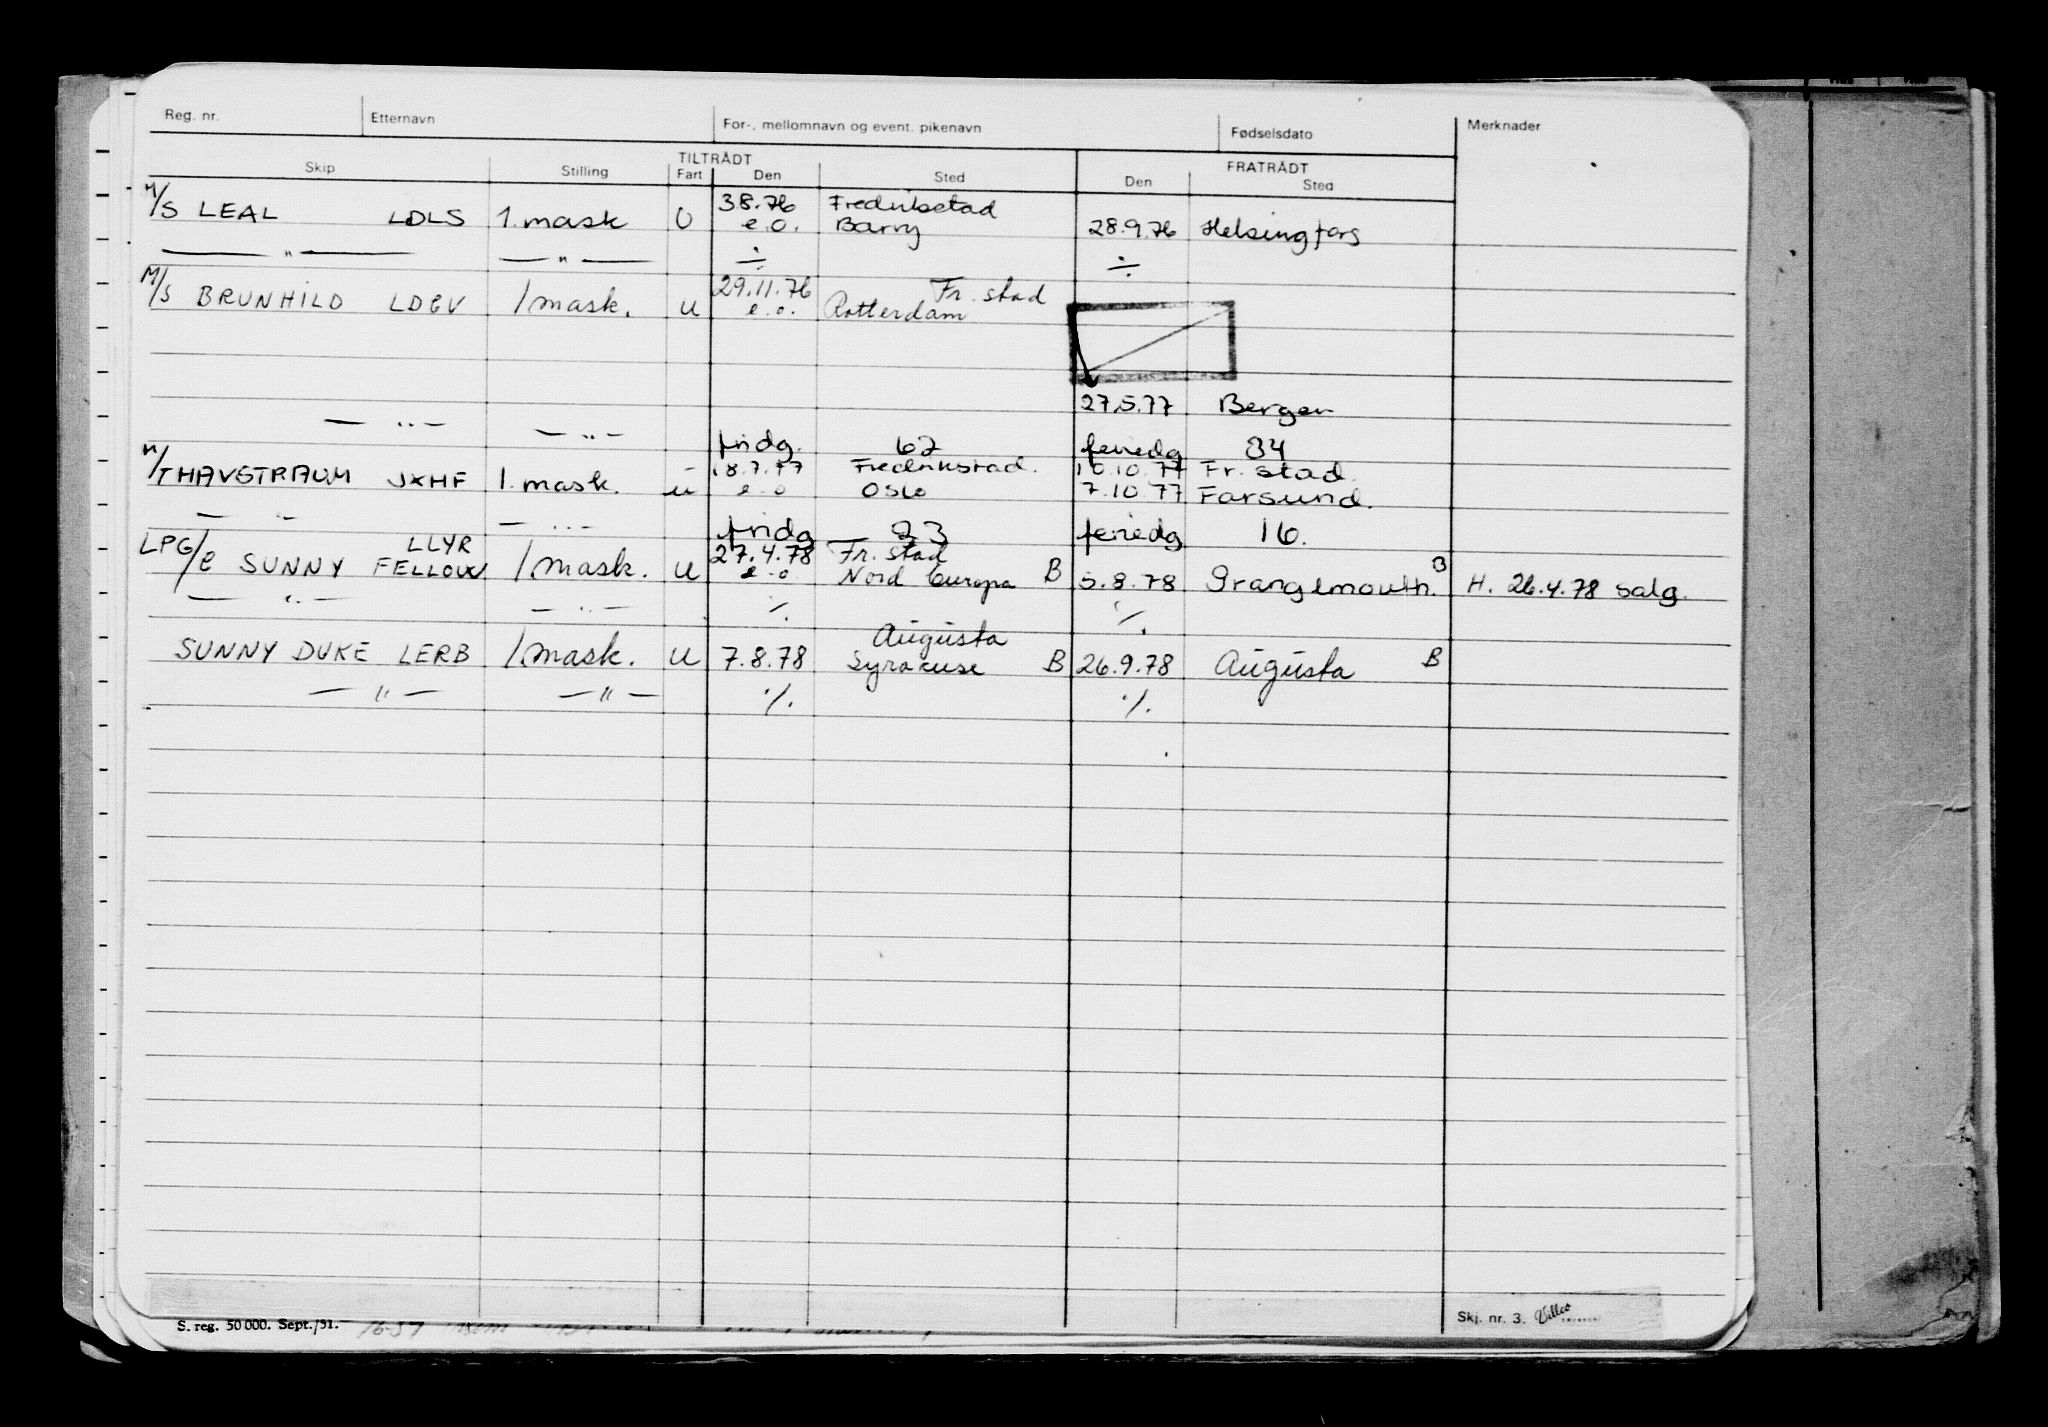 Reg. nr. Etternavn For-, mellomnavn og event. pikenavn Fødselsdato Merknader
TILTRÅDT FRATRÅDT
Skip Stilling Fart Den Sted Den Sted
3.8.76 Fredrikstad
M/S LEAL LDLS 1. mask U e.o. Barry 28.9.76 Helsingfors
— " — — " — ÷ ÷
29.11.76 Fr. stad
M/S BRUNHILD LDGV 1 mask. U e.o. Rotterdam
27.5.77 Bergen
— " — — " — fridg. 62 feriedg 34
18.7.77 Fredrikstad. 10.10.77 Fr. stad.
M/T HAVSTRAUM JXHF 1. mask. u e.o Oslo 7.10.77 Farsund.
— " — — " — fridg 23 feriedg 16.
LLYR 27.4.78 Fr. stad
LPG/C SUNNY FELLOW 1 mask. U e.o Nord Europa B 5.8.78 Grangemouth. B H. 26.4.78 salg.
— " — — " — ·/. ·/.
Augusta
SUNNY DUKE LERB 1. mask. U 7.8.78 Syrakuse B 26.9.78 Augusta B
— " — — " — ·/. ·/.
S. reg. 50 000. Sept./51. Skj. nr. 3.